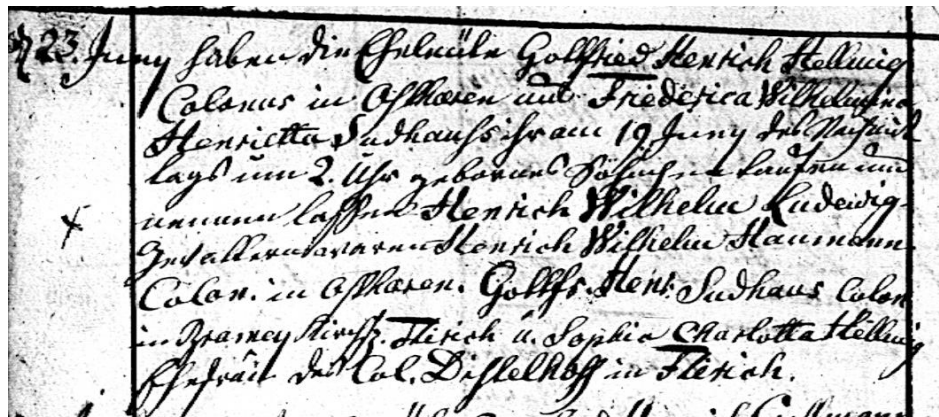 d 23. Juny haben die Eheleute Gottfried Henrich Hellwig
Colonus in Osthæren und Friederica Wilhelmina
Henrietta Sudhaus ihr am 19 Juny des Nachmit
tags um 2. Uhr gebornes Söhnchen taufen und
nennen lassen Henrich Wilhelm Ludewig.
Gevattern waren Henrich Wilhelm Haumann
Colon. in Osthæren. Gottfr. Henr. Sudhaus Colon
in Kirchsp. Flirich u. Sophia Charlotta Hellwig
Ehefrau des Col. Distelhoff in Flerich.